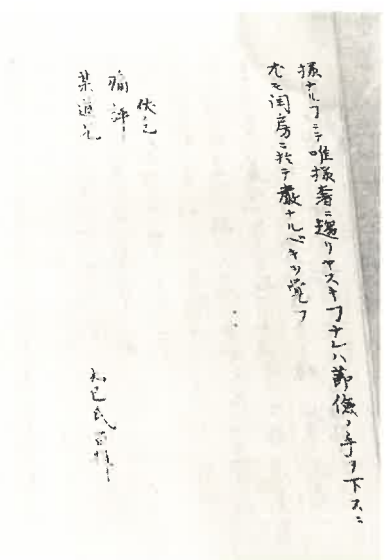 様ナルヿニテ唯猿奢ニ趨リヤスキヿナレハ節倹ノ手ヲ下スニ
尤モ閨房ニ於テ厳ナルベキヲ覚フ
伏乞
痛評
某道兄
知己氏首拝